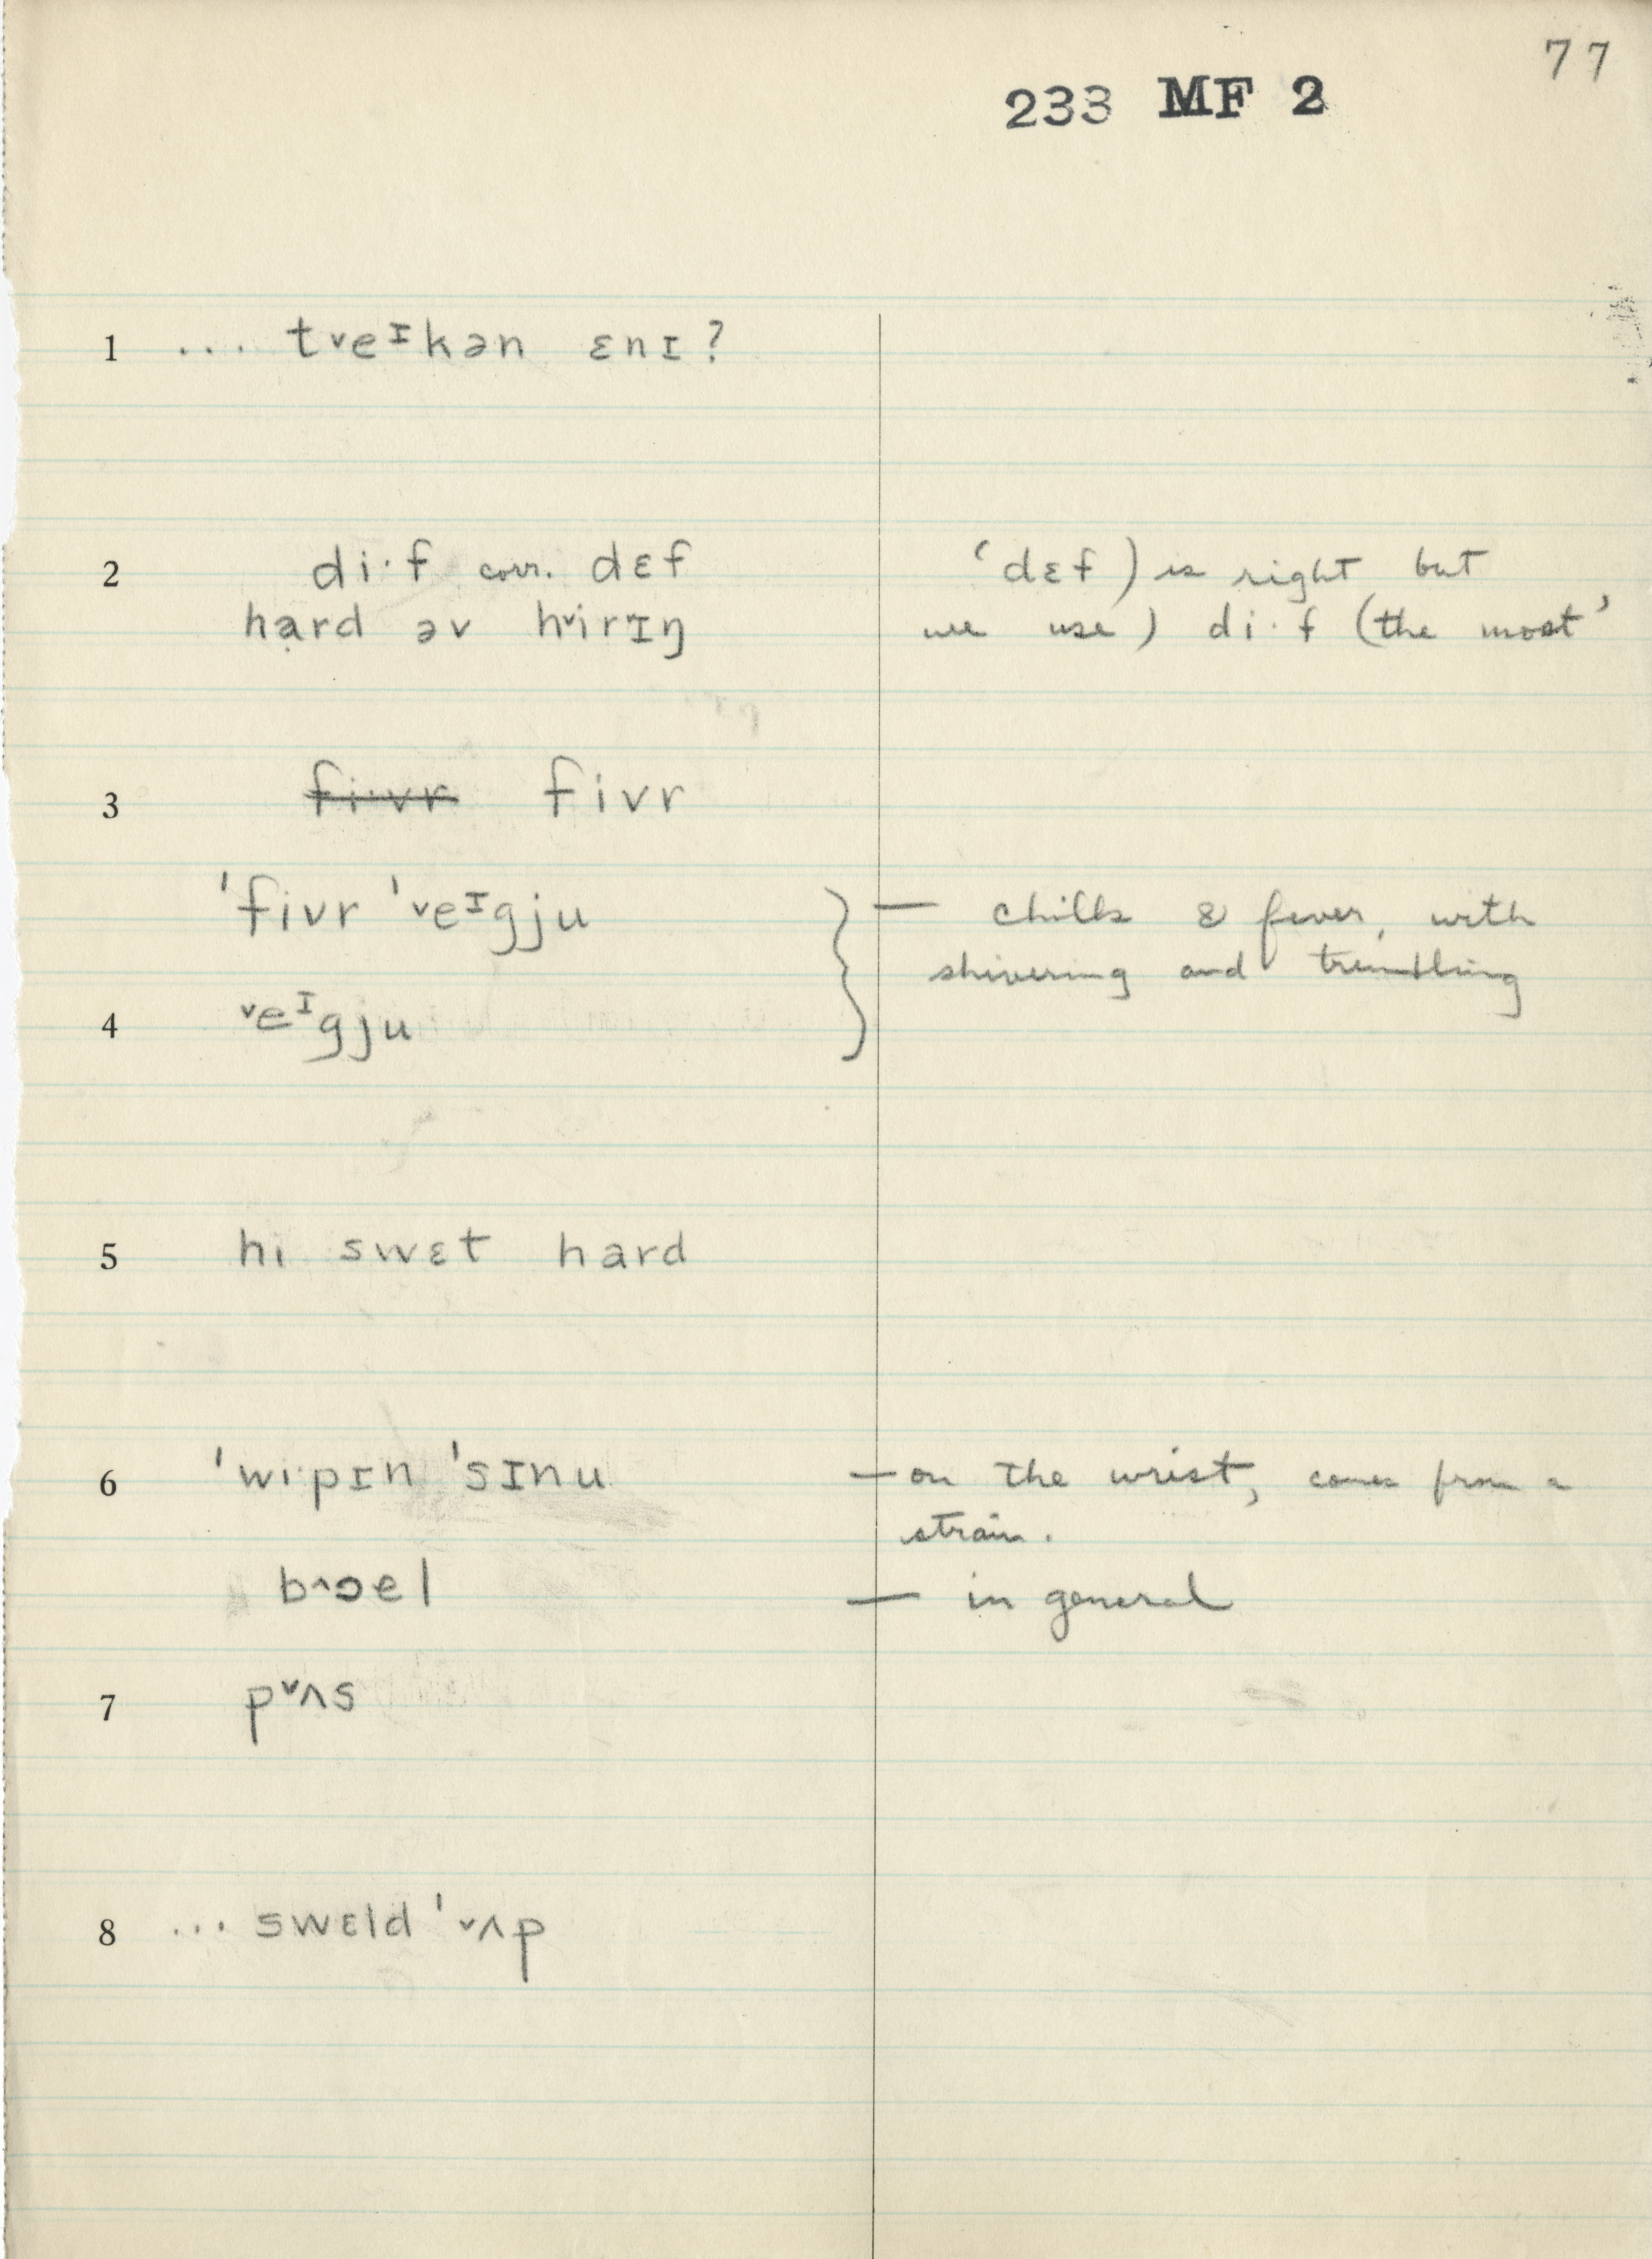 77
233 MF 2
1 ... tᵛeᶦkən ɛnɪ?
2 di·f corr. dɛf ‘dɛf) is right but
hạrd əv hᵛirɪŋ we use) di·f (the most’
3 fi·vr fivr
ˈfivr ˈᵛeᶦgju — chills & fever, with
shivering and trembling
4 ᵛeᶦgju
5 hi swɛt hard
6 ˈwi·pɪn ˈsɪnu — on the wrist, comes from a
strain.
b^ɔel — in general
7 pᵛʌs
8 ... swɛld ˈᵛʌp